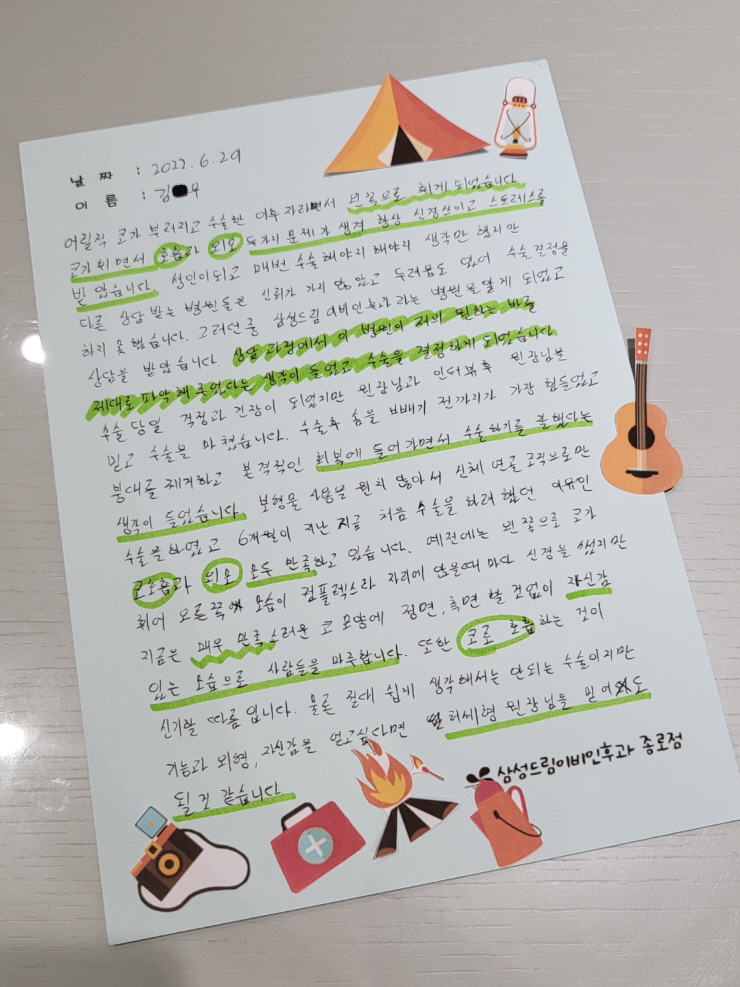 날 짜 : 2022. 6. 29
이 름 : 김 우
어릴적 코가 부러지고 수술한 이후 자라면서 왼쪽으로 휘게 되었습니다.
코가 휘면서 호흡과 외모 두가지 문제가 생겨 항상 신경쓰이고 스트레스를
받았습니다. 성인이되고 매번 수술해야지 해야지 생각만 했지만
다른 상담 받는 병원들은 신뢰가 가지 않았고 두려움도 있어 수술결정을
하지 못했습니다. 그러던중 삼성드림이비인후과라는 병원을 알게 되었고
상담을 받았습니다. 상담 과정에서 이 병원이 저의 원하는 바를
제대로 파악해 주었다는 생각이 들었고 수술을 결정하게 되었습니다.
수술 당일 걱정과 긴장이 되었지만 원장님과 인터뷰후 원장님을
믿고 수술을 마쳤습니다. 수술후 솜을 빼기 전까지가 가장 힘들었고
붕대를 제거하고 본격적인 회복에 들어가면서 수술하기를 잘했다는
생각이 들었습니다. 보형물 사용을 원치 않아서 신체 연골 조직으로만
수술을하였고 6개월이 지난 지금 처음 수술을 하려 했던 이유인
코호흡과 외모 모두 만족하고 있습니다. 예전에는 왼쪽으로 코가
휘어 오른쪽 모습이 컴플렉스라 자리에 앉을때 마다 신경을 썼지만
지금은 매우 만족스러운 코 모양에 정면, 측면 할 것없이 자신감
있는 모습으로 사람들을 마주합니다. 또한 코로 호흡하는 것이
신기할 따름입니다. 물론 절대 쉽게 생각해서는 안되는 수술이지만
기능과 외형, 자신감을 얻고싶다면 허세형 원장님을 믿어도
될 것 같습니다
삼성드림이비인후과 종로점